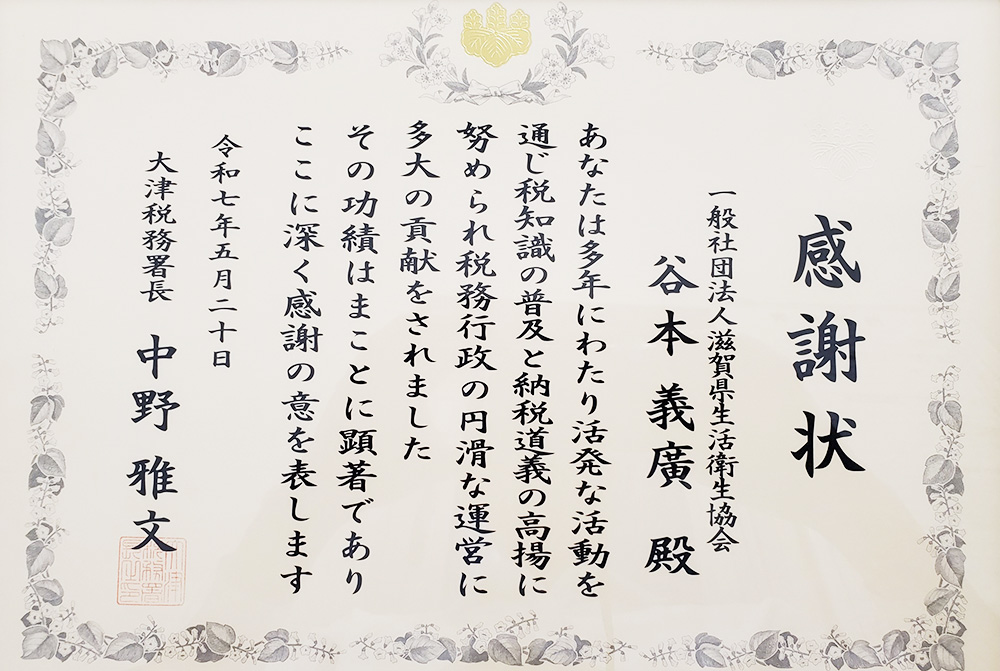 感謝状
一般社団法人滋賀県生活衛生協会
谷本義廣 殿
あなたは多年にわたり活発な活動を
通じ税知識の普及と納税道義の高揚に
努められ税務行政の円滑な運営に
多大の貢献をされました
その功績はまことに顕著であり
ここに深く感謝の意を表します
令和七年五月二十日
大津税務署長 中野雅文